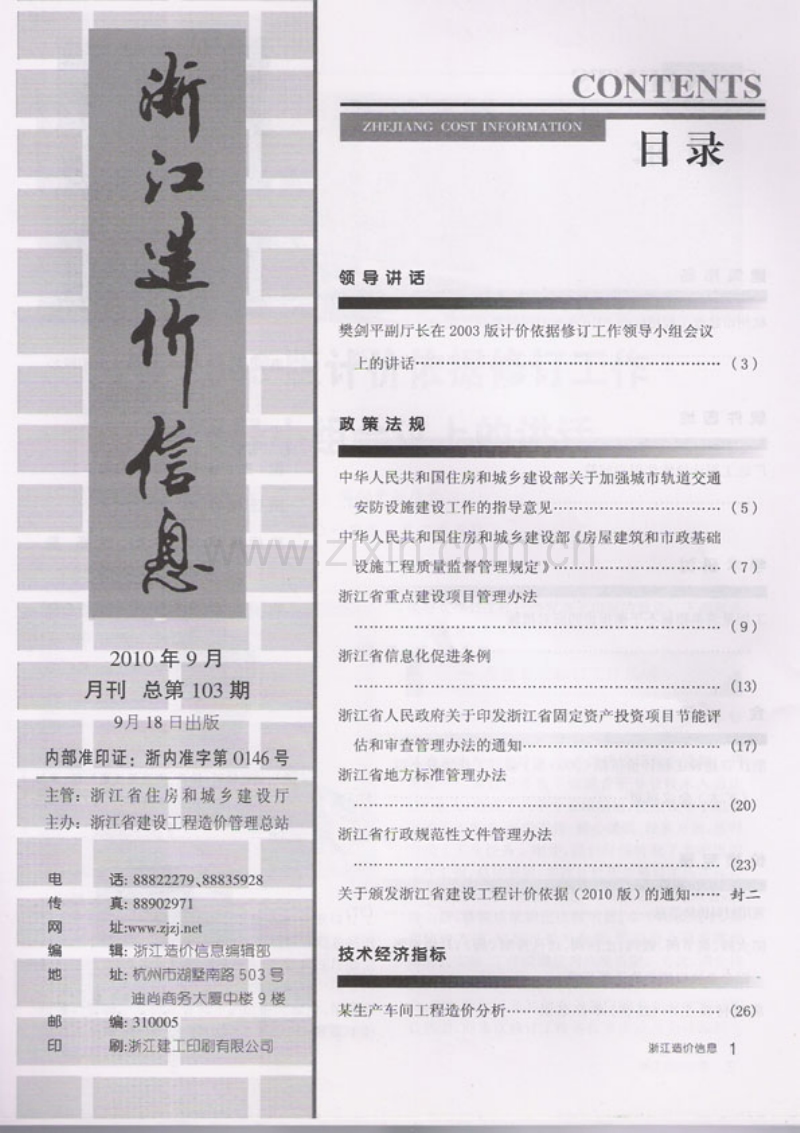 浙江造价信息
2010 年 9 月
月刊 总第 103 期
9月18日出版
内部准印证：浙内准字第 0146 号
主管：浙江省住房和城乡建设厅
主办：浙江省建设工程造价管理总站
电 话: 88822279、88835928
传 真: 88902971
网 址:www.zjzj.net
编 辑: 浙江造价信息编辑部
地 址: 杭州市湖墅南路 503 号
迪尚商务大厦中楼 9 楼
邮 编: 310005
印 刷:浙江建工印刷有限公司
CONTENTS
ZHEJIANG COST INFORMATION
目录
领导讲话
樊剑平副厅长在 2003 版计价依据修订工作领导小组会议
上的讲话……………………………………………（3）
政策法规
中华人民共和国住房和城乡建设部关于加强城市轨道交通
安防设施建设工作的指导意见……………………………（5）
中华人民共和国住房和城乡建设部《房屋建筑和市政基础
设施工程质量监督管理规定》……………………………（7）
浙江省重点建设项目管理办法
……………………………………………………………（9）
浙江省信息化促进条例
……………………………………………………………(13)
浙江省人民政府关于印发浙江省固定资产投资项目节能评
估和审查管理办法的通知…………………………………(17)
浙江省地方标准管理办法
……………………………………………………………(20)
浙江省行政规范性文件管理办法
……………………………………………………………(23)
关于颁发浙江省建设工程计价依据（2010 版）的通知…… 封二
技术经济指标
某生产车间工程造价分析…………………………………(26)
浙江造价信息 1
www.zixin.com.cn